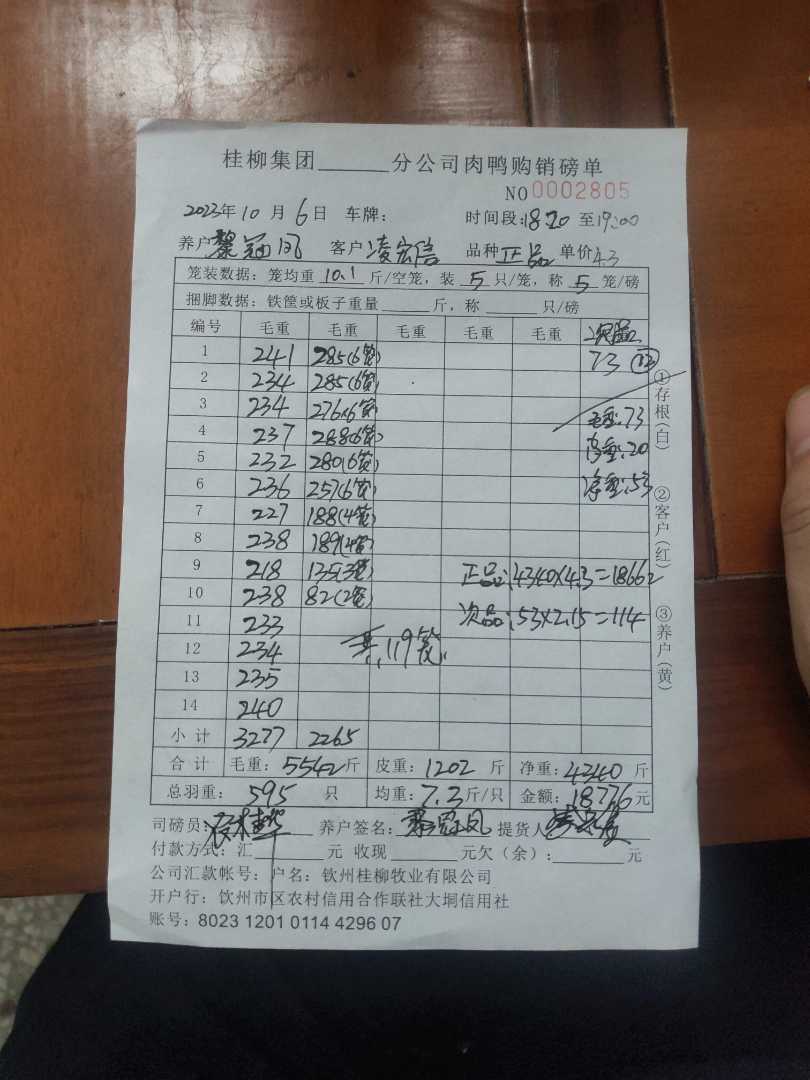 桂柳集团______分公司肉鸭购销磅单
NO 0002805
2023年10月6日 车牌: 时间段:18:20至19:00
养户 黎冠凤 客户 凌宏信 品种 正品 单价4.3
笼装数据：笼均重 10.1 斤/空笼，装 5 只/笼，称 5 笼/磅
捆脚数据：铁筐或板子重量______斤，称______只/磅
编号 毛重 毛重 毛重 毛重 毛重 次品
1 241 285(6笼) 73
2 234 285(6笼)
3 234 276(6笼) 毛重:73
4 237 288(6笼) 皮重:20
5 232 280(6笼) 净重:53
6 236 257(6笼)
7 227 188(4笼)
8 238 189(4笼)
9 218 135(3笼) 正品:4340×4.3=18662
10 238 82(2笼) 次品:53×2.15=114
11 233
12 234 共:119笼
13 235
14 240
小计 3277 2265
合计 毛重：5542斤 皮重：1202斤 净重：4340斤
总羽重：595只 均重：7.3斤/只 金额：18776元
司磅员: 养户签名：黎冠凤 提货人:
付款方式：汇______元 收现______元欠（余）:______元
公司汇款帐号：户名：钦州桂柳牧业有限公司
开户行：钦州市区农村信用合作联社大垌信用社
账号：8023 1201 0114 4296 07
①存根(白) ②客户(红) ③养户(黄)